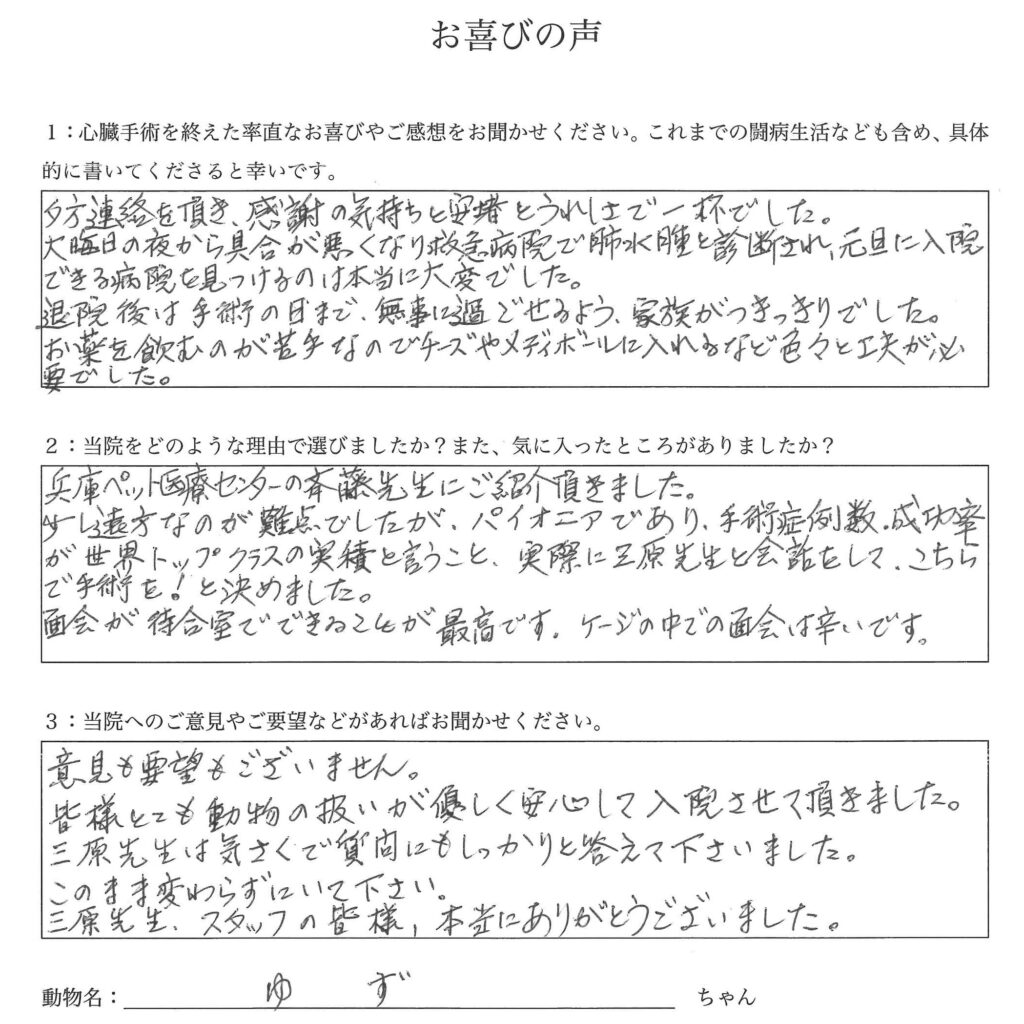 お喜びの声
1:心臓手術を終えた率直なお喜びやご感想をお聞かせください。これまでの闘病生活なども含め、具体
的に書いてくださると幸いです。
夕方連絡を頂き、感謝の気持ちと安堵とうれしさで一杯でした。
大晦日の夜から具合が悪くなり救急病院で肺水腫と診断され、元旦に入院
できる病院を見つけるのは本当に大変でした。
退院後は手術の日まで、無事に過ごせるよう、家族がつきっきりでした。
お薬を飲むのが苦手なのでチーズやメディボールに入れるなど色々と工夫が必
要でした。
2:当院をどのような理由で選びましたか?また、気に入ったところがありましたか?
兵庫ペット医療センターの斉藤先生にご紹介頂きました。
少し遠方なのが難点でしたが、パイオニアであり、手術症例数、成功率
が世界トップクラスの実積と言うこと、実際に三原先生と会話をして、こちら
で手術を!と決めました。
面会が待合室でできることが最高です。ケージの中での面会は辛いです。
3:当院へのご意見やご要望などがあればお聞かせください。
意見も要望もございません。
皆様とても動物の扱いが優しく安心して入院させて頂きました。
三原先生は気さくで質問にもしっかりと答えて下さいました。
このまま変わらずにいて下さい。
三原先生、スタッフの皆様、本当にありがとうございました。
動物名: ゆず ちゃん